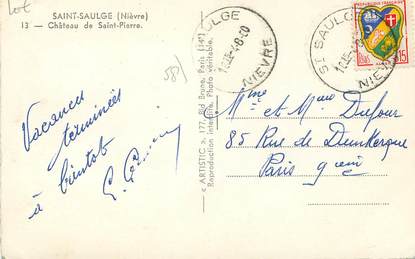 Lot
SAINT-SAULGE (Nièvre)
13 — Château de Saint-Pierre.
58
Vacances
terminées
à bientôt
« ARTISTIC », 177, Bld Brune, Paris (14e)
Reproduction interdite. Photo véritable.
SAULGE
NIÈVRE
ST SAULGE
NIÈVRE
REPUBLIQUE FRANÇAISE
15
Mme et Mr Dufour
85 Rue de Dunkerque
Paris 9eme